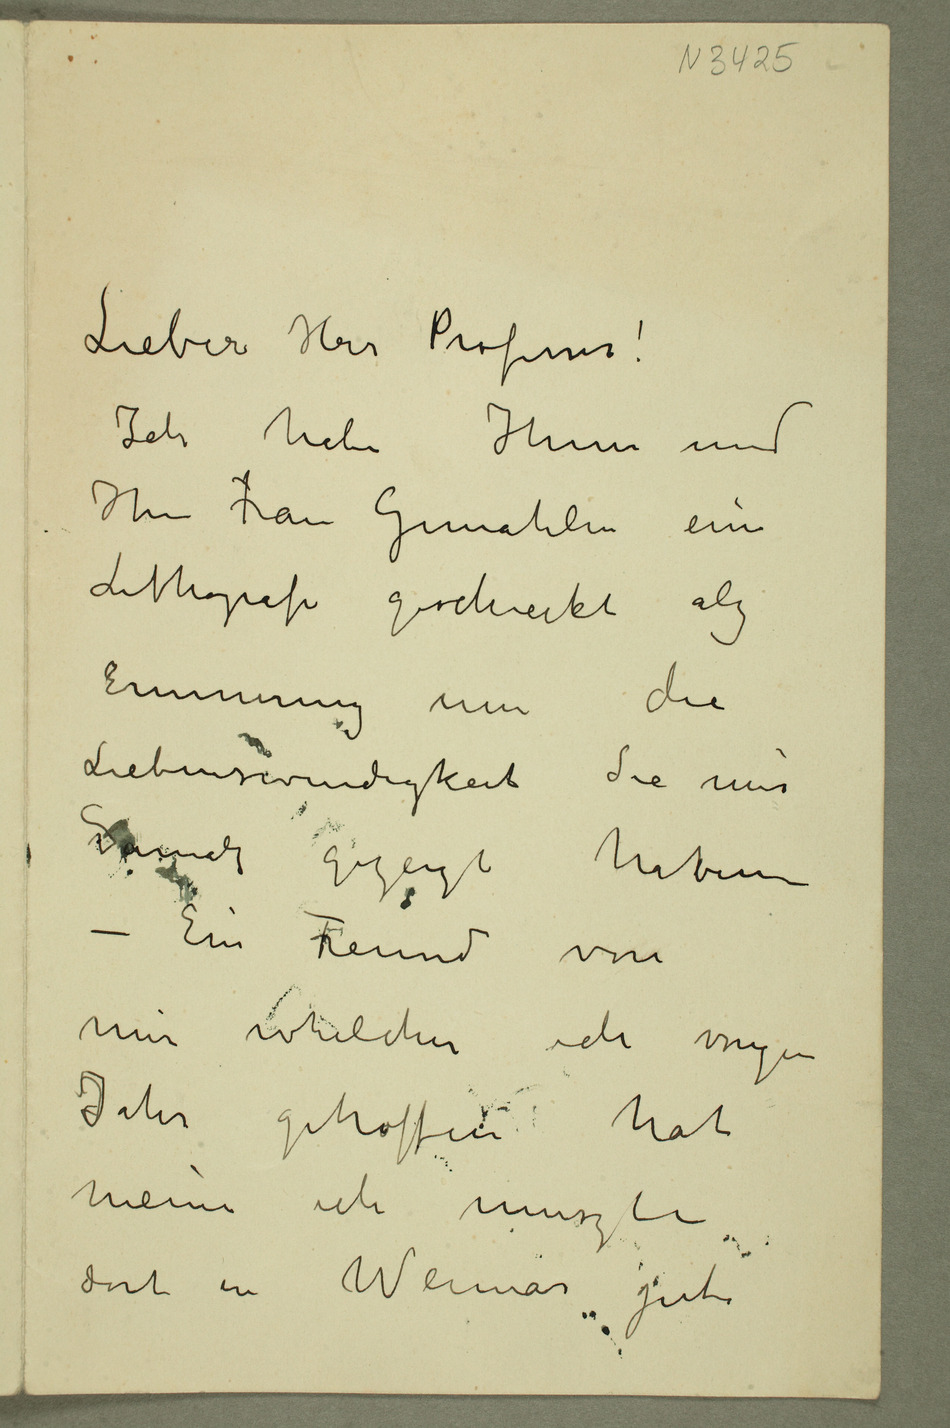 N 3425
Lieber Herr Professor!
Ich habe Ihnen und
Ihre Frau Gemahlin eine
Lithografi geschickt als
Erinnerung um die
Liebenswurdigkeit Sie mir
Damals gezeigt haben
– Ein Freund von
mir whelcher ich vorigen
Jahr getroffen hat
meine ich muszte
dort in Weimar jetz